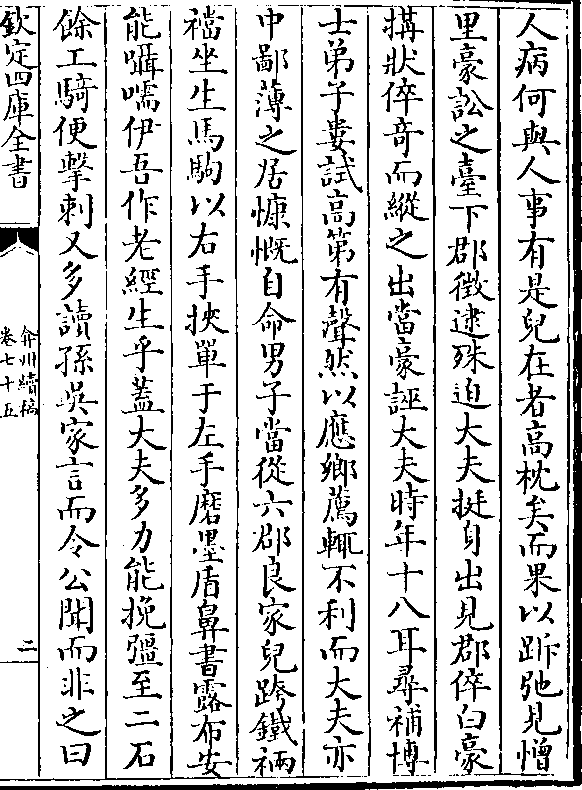 人病何與人事有是兒在者高枕矣而果以跅弛見憎
里豪訟之臺下郡徵逮殊迫大夫挺身出見郡倅白豪
搆狀倅奇而縱之出當豪誣大夫時年十八耳尋補博
士弟子婁試高第有聲然以應鄉薦輙不利而大夫亦
中鄙薄之居慷慨自命男子當從六郡良家兒跨鐵裲
襠坐生馬駒以右手挾單于左手磨墨盾鼻書露布安
能囁嚅伊吾作老經生乎蓋大夫多力能挽彊至二石
餘工騎便擊刺又多讀孫吳家言而令公聞而非之曰
欽定四庫全書
弇州續稿
卷七十五
二